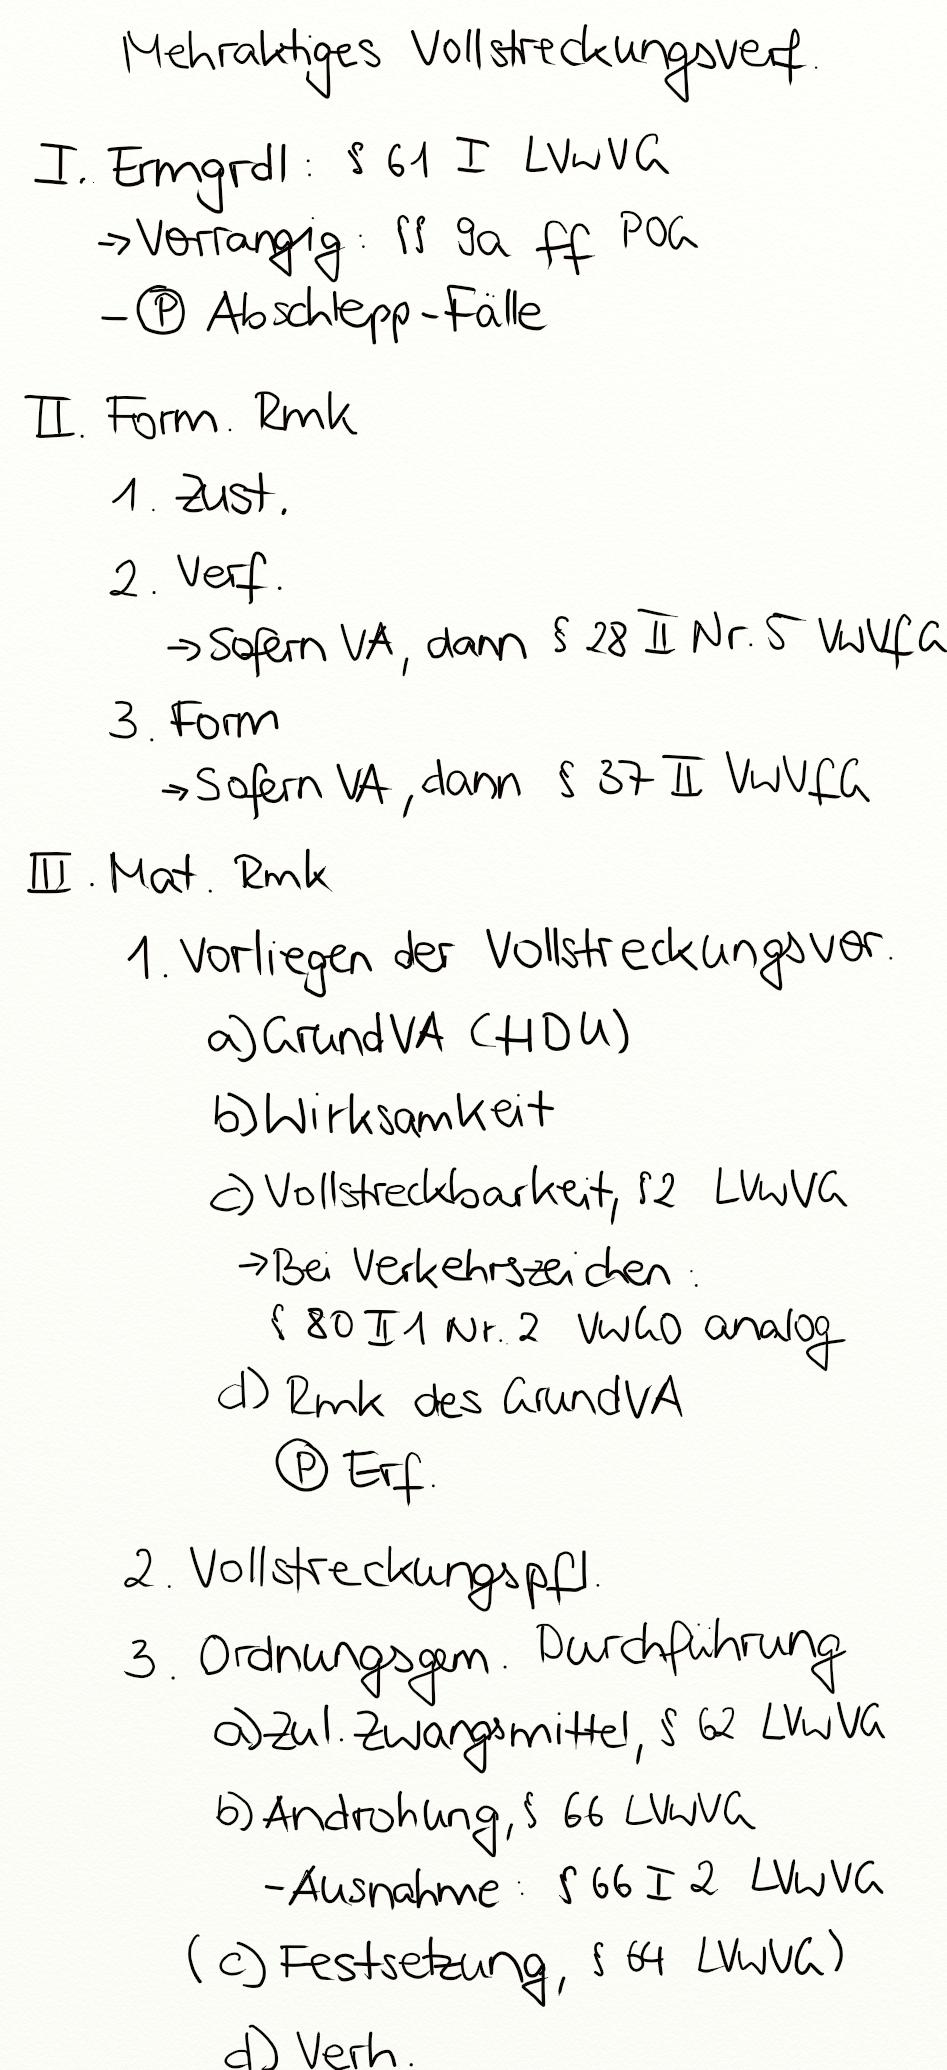 Mehraktiges Vollstreckungsverf.
I. Ermgrdl: § 61 I LVwVG
→ Vorrangig: §§ 9a ff POG
- Ⓟ Abschlepp-Fälle
II. Form. Rmk
1. Zust.
2. Verf.
→ Sofern VA, dann § 28 II Nr. 5 VwVfG
3. Form
→ Sofern VA, dann § 37 II VwVfG
III. Mat. Rmk
1. Vorliegen der Vollstreckungsvor.
a) GrundVA (HDU)
b) Wirksamkeit
c) Vollstreckbarkeit, §2 LVwVG
→ Bei Verkehrszeichen:
§ 80 II 1 Nr. 2 VwGO analog
d) Rmk des GrundVA
Ⓟ Erf.
2. Vollstreckungspfl.
3. Ordnungsgem. Durchführung
a) Zul. Zwangsmittel, § 62 LVwVG
b) Androhung, § 66 LVwVG
- Ausnahme: § 66 I 2 LVwVG
(c) Festsetzung, § 64 LVwVG)
d) Verh.